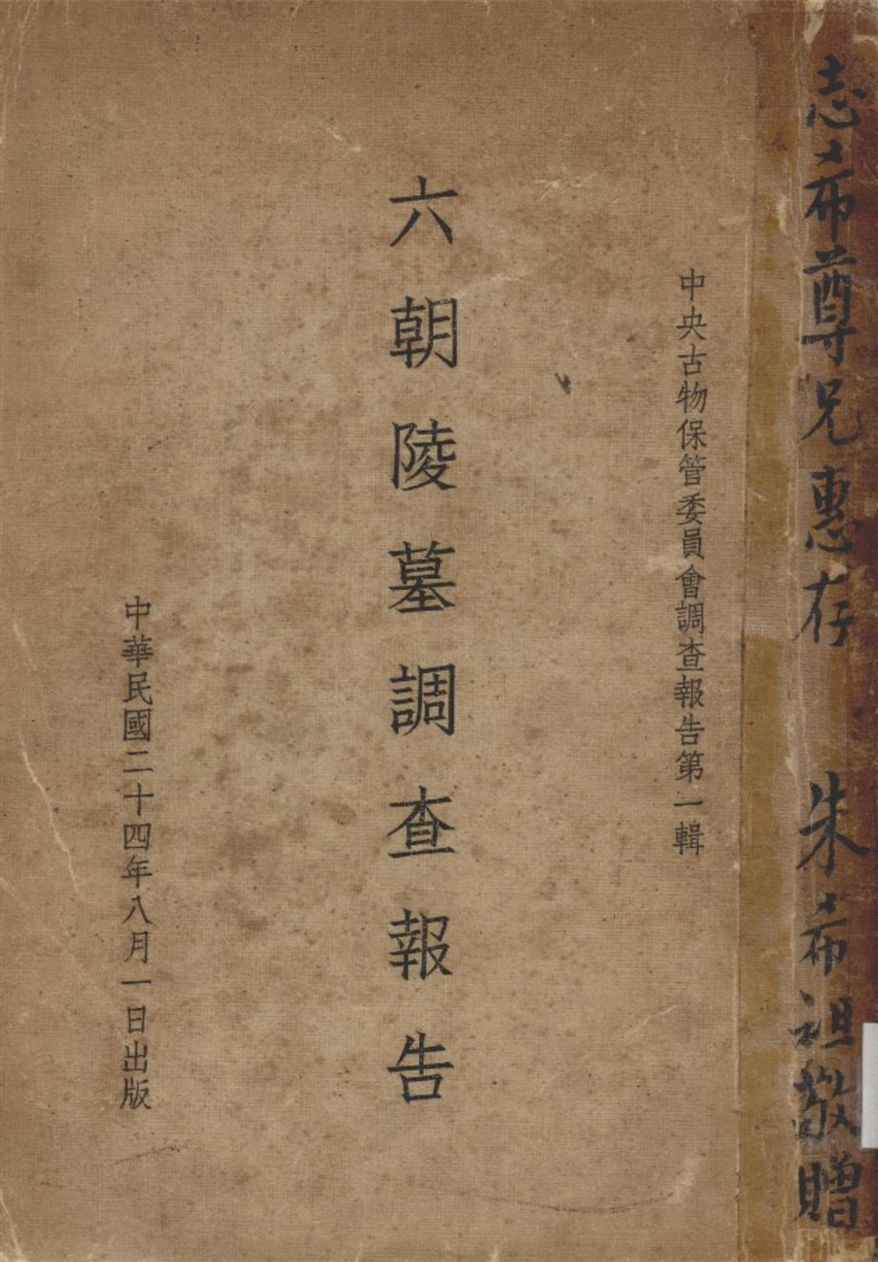 志希尊兄惠存 朱希祖敬贈
中央古物保管委員會調查報告第一輯
六朝陵墓調查報告
中華民國二十四年八月一日出版